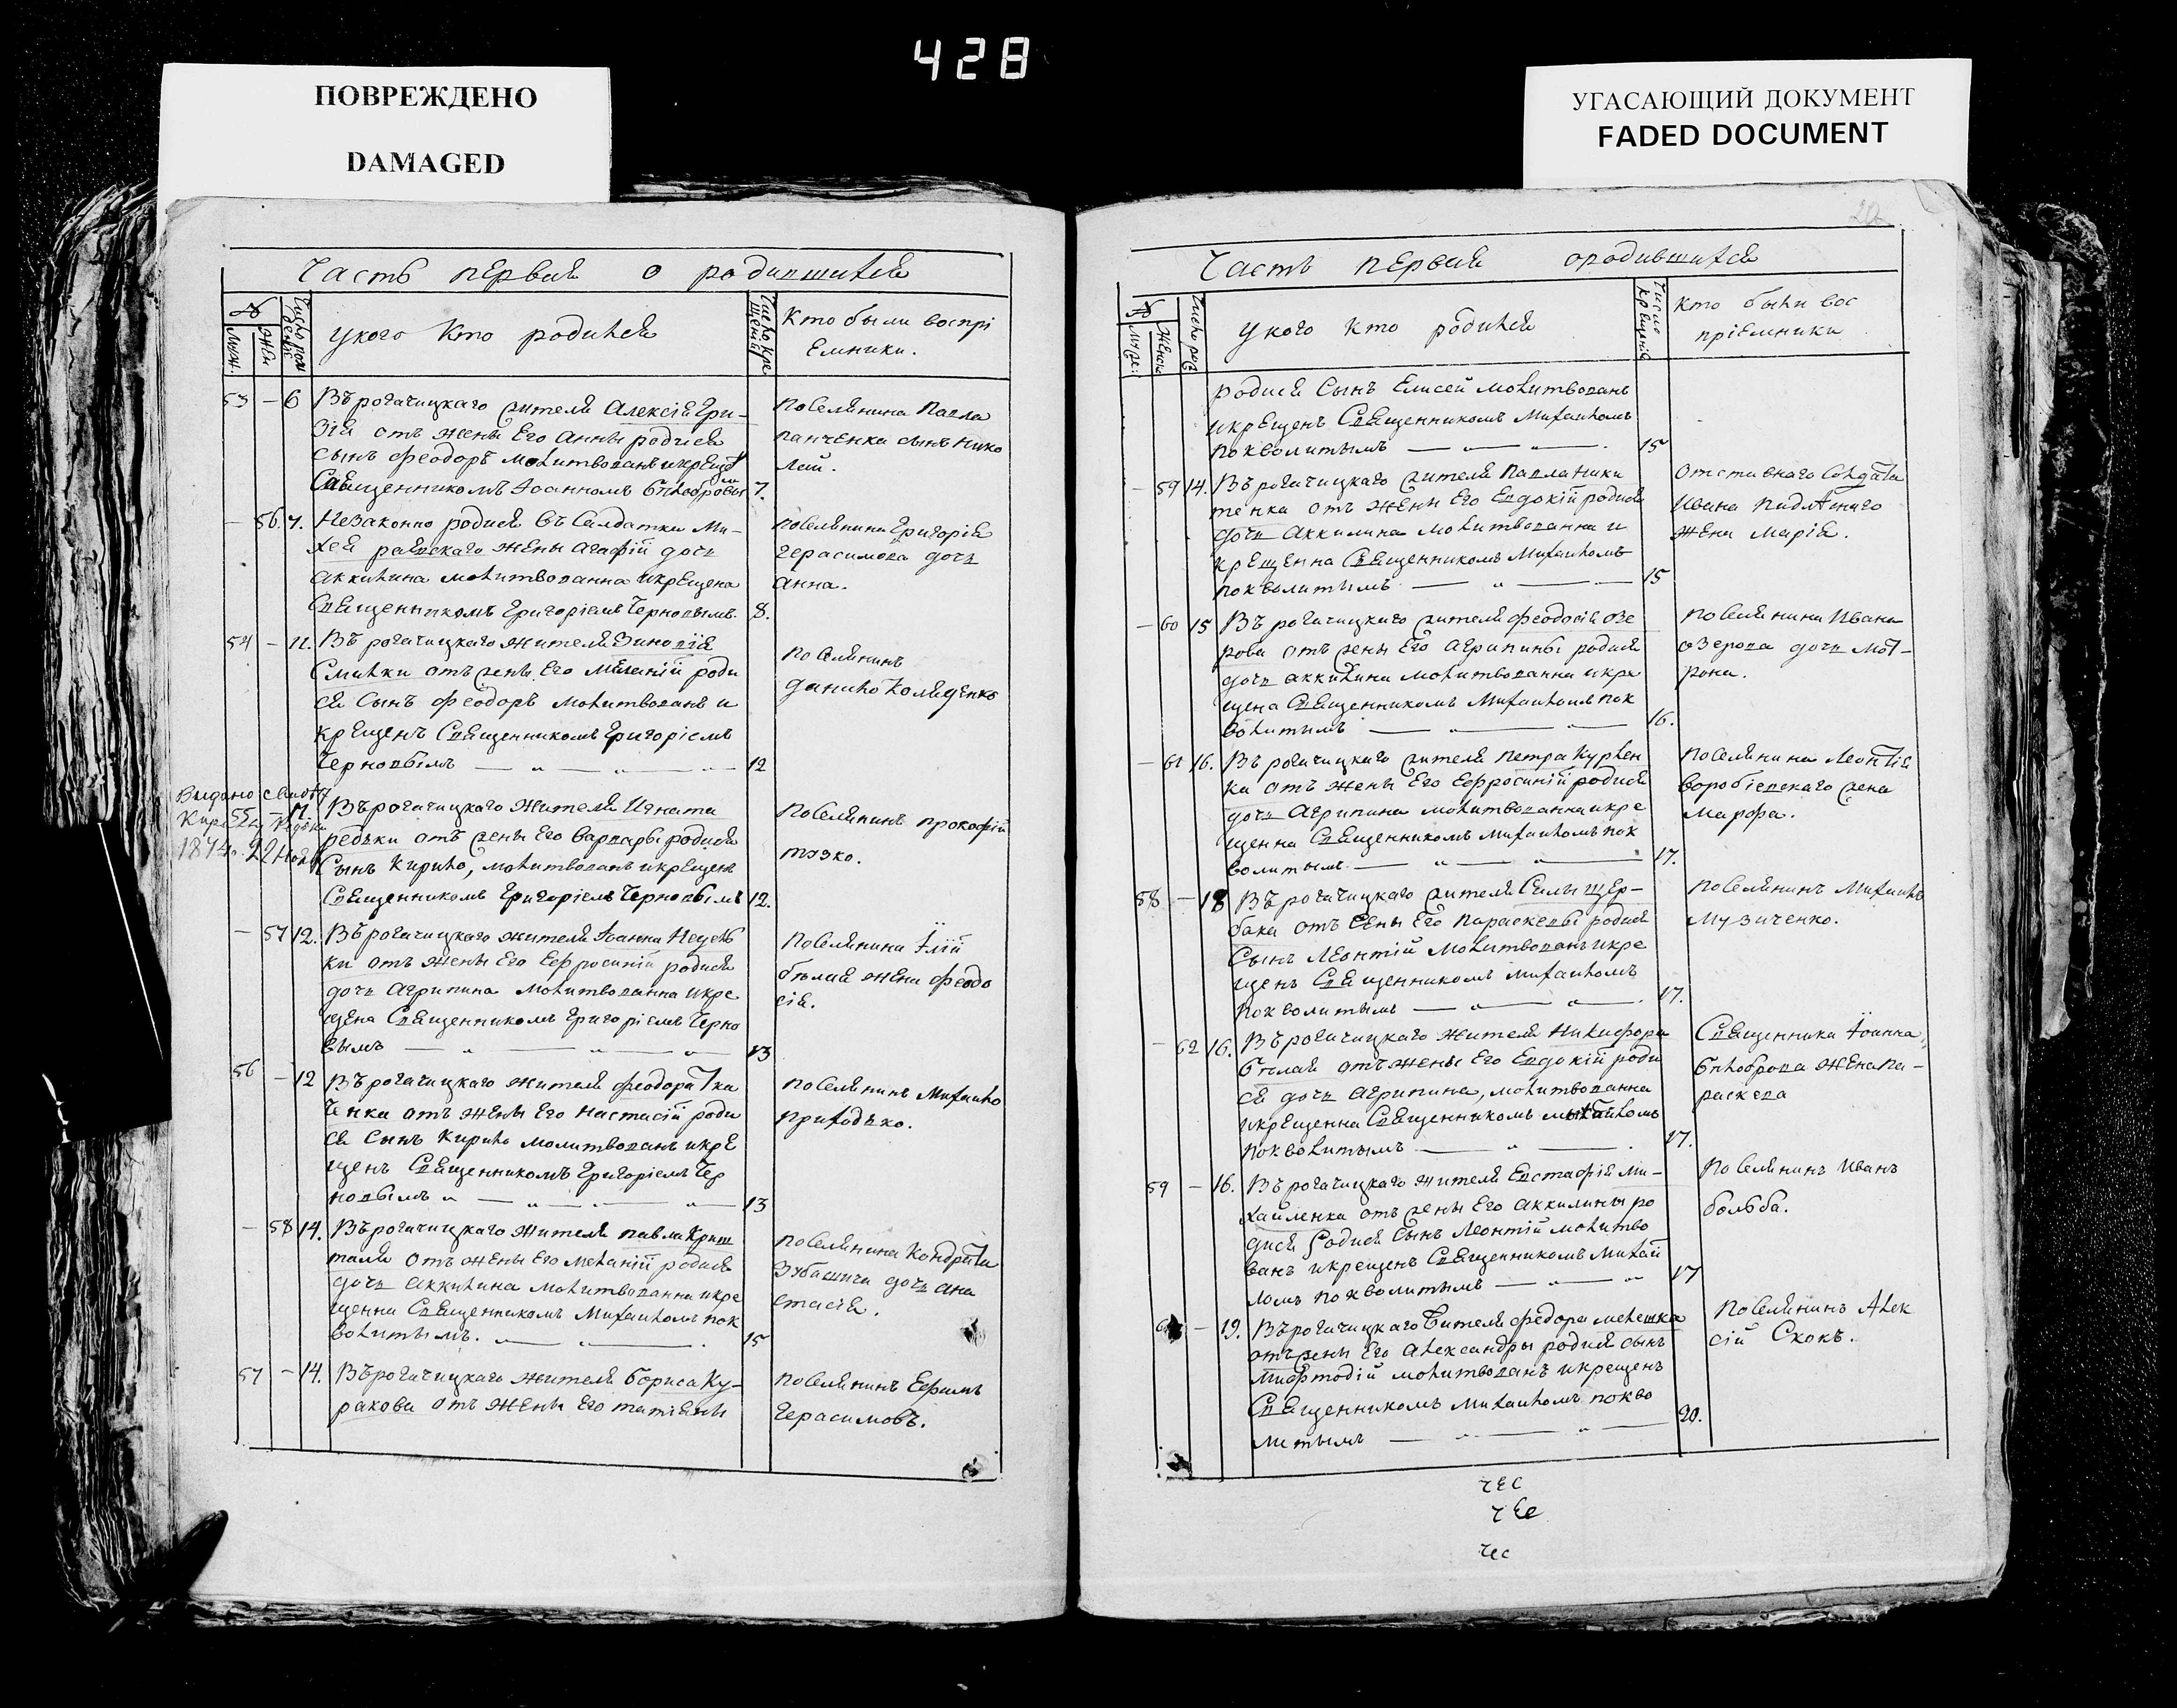 428
ПОВРЕЖДЕНО
DAMAGED
УГАСАЮЩИЙ ДОКУМЕНТ
FADED DOCUMENT
Часть первая о родившихся
№
Муж.
Жен.
у кого кто родился
Кто были воспрі
Емники.
53 – 6 Въ рогачицкаго жителя Алексія Гри-
зія отъ жены Его Анны родися
сынъ Феодоръ молитвованъ и крещ
Священникомъ Іоанномъ 7.
поселянина Павла
панченка сынъ Нико
лай.
– 56. 7. Незаконно родися въ Салдатки Ми-
жены Агафіи дочь
Аккилина молитвованна и крещена
Священникомъ Григоріемъ Черновымъ. 8.
поселянина Григорія
Герасимова дочь
Анна.
54 – 11. Въ рогачицкаго жителя Зиновія
Смилки отъ жены Его Меланіи роди
ся Сынъ Феодоръ молитвованъ и
крещенъ Священникомъ Григоріемъ
Черновымъ — „ — „ — 12
поселянинъ
Данило Коляденко
Выдано свид
1874 г. 22 Нояб
55 – 11. Въ рогачицкаго жителя Игната
редьки отъ жены Его Варвары родися
Сынъ Кирило, молитвованъ и крещенъ
Священникомъ Григоріемъ Черновымъ 12.
поселянинъ прокофій
– 57 12. Въ рогачицкаго жителя Іоанна
ки отъ жены Его Ефросиніи родися
дочь Агрипина молитвованна и кре
щена Священникомъ Григоріемъ Черно
вымъ — „ — „ — „ — 13
поселянина Іліи
бѣлая жена Феодо
сія.
56 – 12 Въ рогачицкаго жителя Феодора Тка
ченка отъ жены Его Настасіи роди
ся Сынъ Кирило молитвованъ и кре
щенъ Священникомъ Григоріемъ Чер
новымъ „ — „ — „ — 13
поселянинъ Михаило
Приходько.
– 58 14. Въ рогачицкаго жителя Павла Криш
таля отъ жены Его Меланіи родися
дочь Аккилина молитвованна и кре
щенна Священникомъ Михаиломъ пок
волитымъ. — „ — . 15
поселянина Кондрата
дочь Ана
стасія.
57 – 14. Въ рогачицкаго жителя Бориса Ку-
ракова отъ жены Его Татіаны
поселянинъ Ефимъ
Герасимовъ.
20
Часть первая о родившихся
№
Муж:
Женск
у кого кто родился
Число крещенія
Кто были вос
пріемники
родися Сынъ Елисей молитвованъ
и крещенъ Священникомъ Михаиломъ
Покволитымъ — „ — . 15
– 59 14. Въ рогачицкаго жителя Павла Ники
тенка отъ жены Его Евдокіи родися
дочь Аккилина молитвованна и
крещенна Священникомъ Михаиломъ
покволитымъ — „ — 15
Отставнаго Солдата
Ивана
жена Марія.
– 60 15 Въ рогачицкаго жителя Феодосія Озе
рова отъ жены Его Агрипины родися
дочь Аккилина молитвованна и кре
щена Священникомъ Михаиломъ пок
волитымъ — „ — „ — 16.
поселянина Ивана
Озерова дочь Мот-
рона.
– 61 16. Въ рогачицкаго жителя Петра Курлен
ка отъ жены Его Ефросиніи родися
дочь Агрипина молитвованна и кре
щенна Священникомъ Михаиломъ пок
волитымъ — „ — „ — 17.
поселянина Леонтія
воробіевскаго жена
Марфа.
58 – 18 Въ рогачицкаго жителя Силы Щер-
бака отъ жены Его Параскевы родися
Сынъ Леонтій молитвованъ и кре
щенъ Священникомъ Михаиломъ
покволитымъ — „ — „ — . 17.
поселянинъ Михаилъ
Музиченко.
– 62 16. Въ рогачицкаго жителя Никифора
Бѣлая отъ жены Его Евдокіи роди
ся дочь Агрипина, молитвованна
и крещенна Священникомъ Михаиломъ
покволитымъ — „ — . 17.
Священника Іоанна
Бѣлоброва жена Па-
раскева
59 – 16. Въ рогачицкаго жителя Евстафія Ми-
хайленка отъ жены Его Аккилины ро
дися Родися Сынъ Леонтій молитво
ванъ и крещенъ Священникомъ Михаи
ломъ покволитымъ — „ — „ 17
поселянинъ Иванъ
больба.
– 19. Въ рогачицкаго жителя Федора Мелешка
отъ жены Его Александры родися сынъ
Мефтодій молитвованъ и крещенъ
Священникомъ Михаиломъ покво
литымъ — „ — „ — 20.
поселянинъ Алек
сій Скокъ.
чес
чес
чес